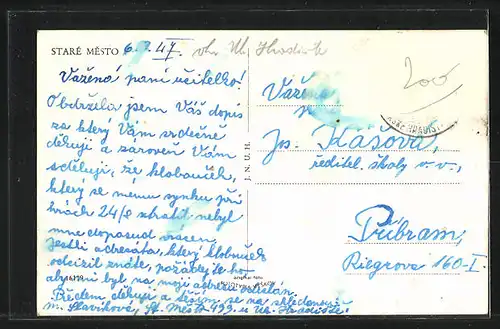 STARÉ MĚSTO 6.9.47 Uh. Hradiště
200
Vážená paní učitelko!
Obdržela jsem Váš dopis
za který Vám srdečně
děkuji a zároveň Vám
sděluji, že klobouček,
který se mému synku při
hrách 24/8 ztratil nebyl
mne doposud vrácen.
Jestli adresáta, který klobouček
odcizil znáte, požádejte ho
aby mi byl na moji adresu odeslán.
Předem děkuji a těším se na shledanou
m. Slavíková, St. Město 499. u Uh. Hradiště.
J. N. U. H.
Vážená
Jos. Klásová,
ředitel. školy v. v.,
Příbram,
Riegrova 160-I.